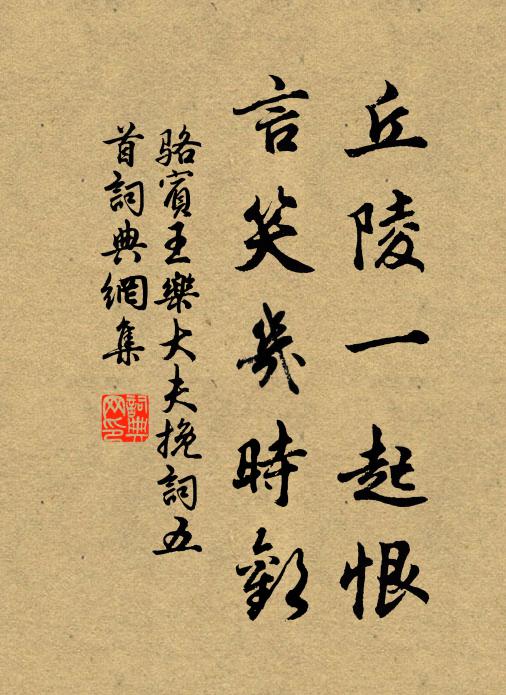 丘陵一起恨
言笑幾時歡
駱賓王樂大夫挽詞五
首詞典網集
詞典
网印